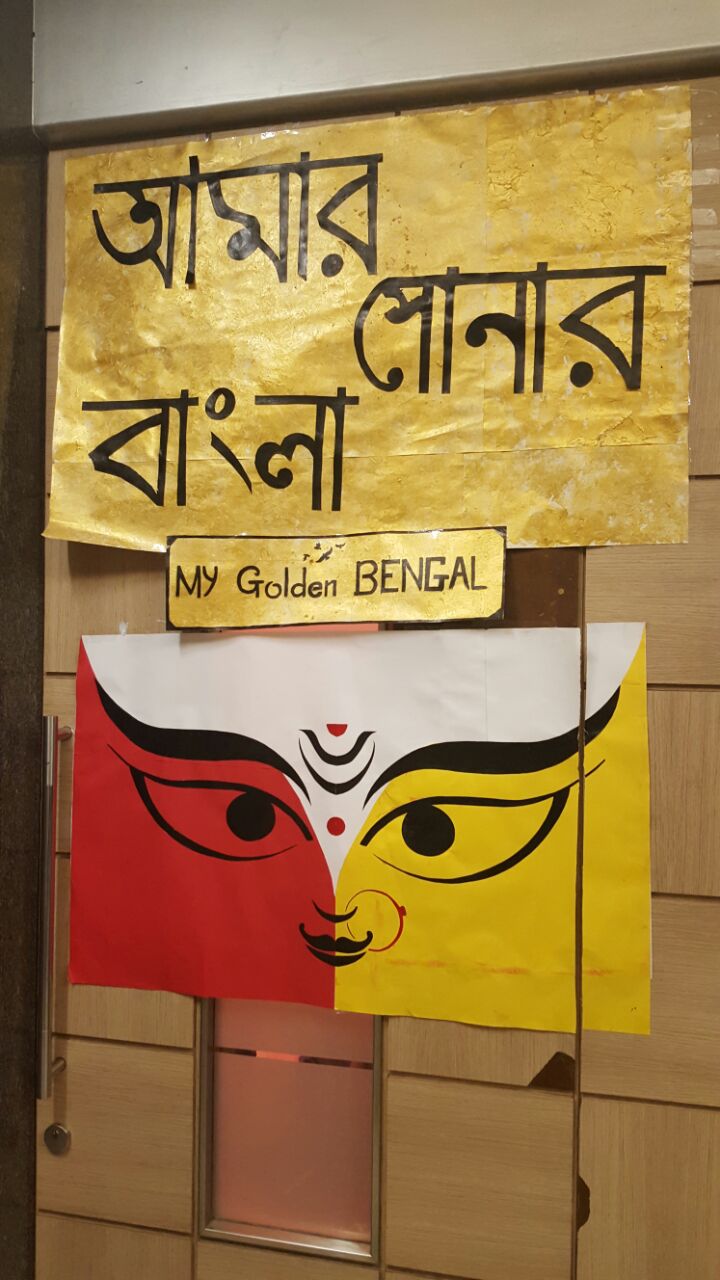 আমার
সোনার
বাংলা
MY Golden BENGAL